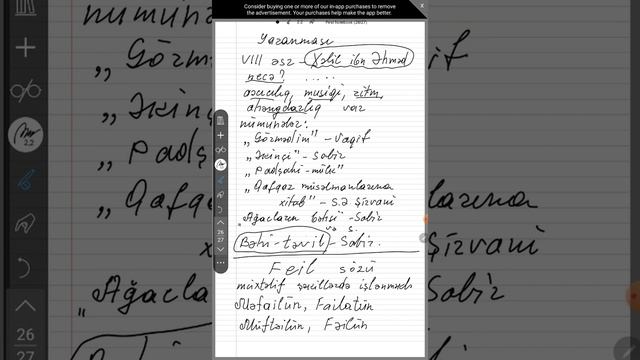 Consider buying one or more of our in-app purchases to remove
the advertisement. Your purchases help make the app better.
X
Yaranması
VIII əsr – Xəlil ibn Əhməd
necə? .....
axıcılıq, musiqi, ritm,
ahəngdarlıq var
nümunələr:
„Görmədim" – Vaqif
„Əkinçi" – Sabir
„Padşahi-mülk"
„Qafqaz müsəlmanlarına
xitab" – S.Ə Şirvani
„Ağacların bəhsi" – Sabir
və s.
Bəhri-təvil – Sabir.
Feil sözü
müxtəlif şəkillərdə işlənməsi
Məfailün, Failatün
Müftəilün, Fəilün
26
27
2,2